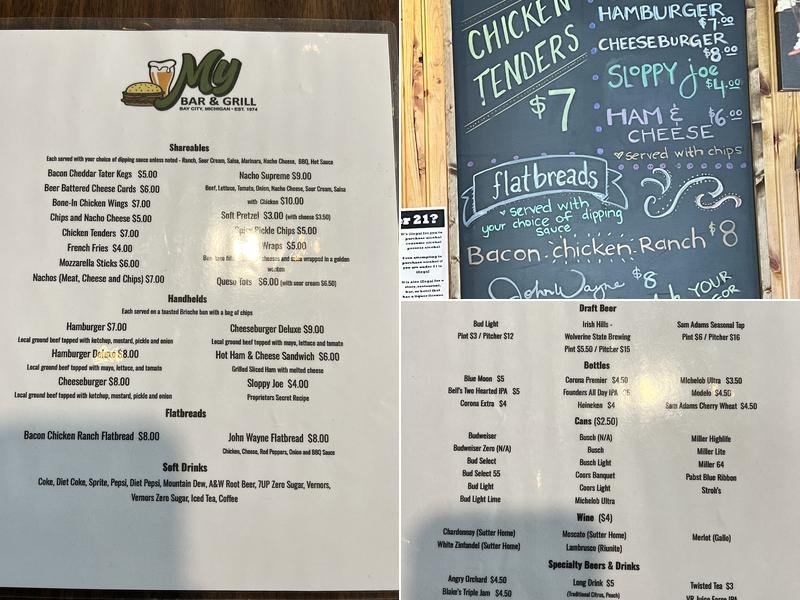 My
BAR & GRILL
BAY CITY, MICHIGAN • EST. 1974
Shareables
Each served with your choice of dipping sauce unless noted - Ranch, Sour Cream, Salsa, Marinara, Nacho Cheese, BBQ, Hot Sauce
Bacon Cheddar Tater Kegs $5.00
Beer Battered Cheese Curds $6.00
Bone-In Chicken Wings $7.00
Chips and Nacho Cheese $5.00
Chicken Tenders $7.00
French Fries $4.00
Mozzarella Sticks $6.00
Nachos (Meat, Cheese and Chips) $7.00
Nacho Supreme $9.00
Beef, Lettuce, Tomato, Onion, Nacho Cheese, Sour Cream, Salsa
with Chicken $10.00
Soft Pretzel $3.00 (with cheese $3.50)
Pickle Chips $5.00
Wraps $5.00
cheeses and salsa wrapped in a golden
wonton
Queso Tots $6.00 (with sour cream $6.50)
Handholds
Each served on a toasted Brioche bun with a bag of chips
Hamburger $7.00
Local ground beef topped with ketchup, mustard, pickle and onion
Hamburger Deluxe $8.00
Local ground beef topped with mayo, lettuce, and tomato
Cheeseburger $8.00
Local ground beef topped with ketchup, mustard, pickle and onion
Cheeseburger Deluxe $9.00
Local ground beef topped with mayo, lettuce and tomato
Hot Ham & Cheese Sandwich $6.00
Grilled Sliced Ham with melted cheese
Sloppy Joe $4.00
Proprietors Secret Recipe
Flatbreads
Bacon Chicken Ranch Flatbread $8.00
John Wayne Flatbread $8.00
Chicken, Cheese, Red Peppers, Onion and BBQ Sauce
Soft Drinks
Coke, Diet Coke, Sprite, Pepsi, Diet Pepsi, Mountain Dew, A&W Root Beer, 7UP Zero Sugar, Vernors,
Vernors Zero Sugar, Iced Tea, Coffee
CHICKEN
TENDERS
$7
HAMBURGER
$7.00
CHEESEBURGER
$8.00
SLOPPY Joe
$4.00
HAM &
CHEESE
$6.00
served with chips
flatbreads
served with
your choice of dipping
sauce
Bacon chicken Ranch $8
John Wayne $8
YOUR
FOR
r 21?
Draft Beer
Bud Light
Pint $3 / Pitcher $12
Irish Hills -
Wolverine State Brewing
Pint $5.50 / Pitcher $15
Sam Adams Seasonal Tap
Pint $6 / Pitcher $16
Bottles
Blue Moon $5
Bell's Two Hearted IPA $5
Corona Extra $4
Corona Premier $4.50
Founders All Day IPA $5
Heineken $4
Michelob Ultra $3.50
Modelo $4.50
Sam Adams Cherry Wheat $4.50
Cans ($2.50)
Budweiser
Budweiser Zero (N/A)
Bud Select
Bud Select 55
Bud Light
Bud Light Lime
Busch (N/A)
Busch
Busch Light
Coors Banquet
Coors Light
Michelob Ultra
Miller Highlife
Miller Lite
Miller 64
Pabst Blue Ribbon
Stroh's
Wine ($4)
Chardonnay (Sutter Home)
White Zinfandel (Sutter Home)
Moscato (Sutter Home)
Lambrusco (Riunite)
Merlot (Gallo)
Specialty Beers & Drinks
Angry Orchard $4.50
Blake's Triple Jam $4.50
Long Drink $5
(Traditional Citrus, Peach)
Twisted Tea $3